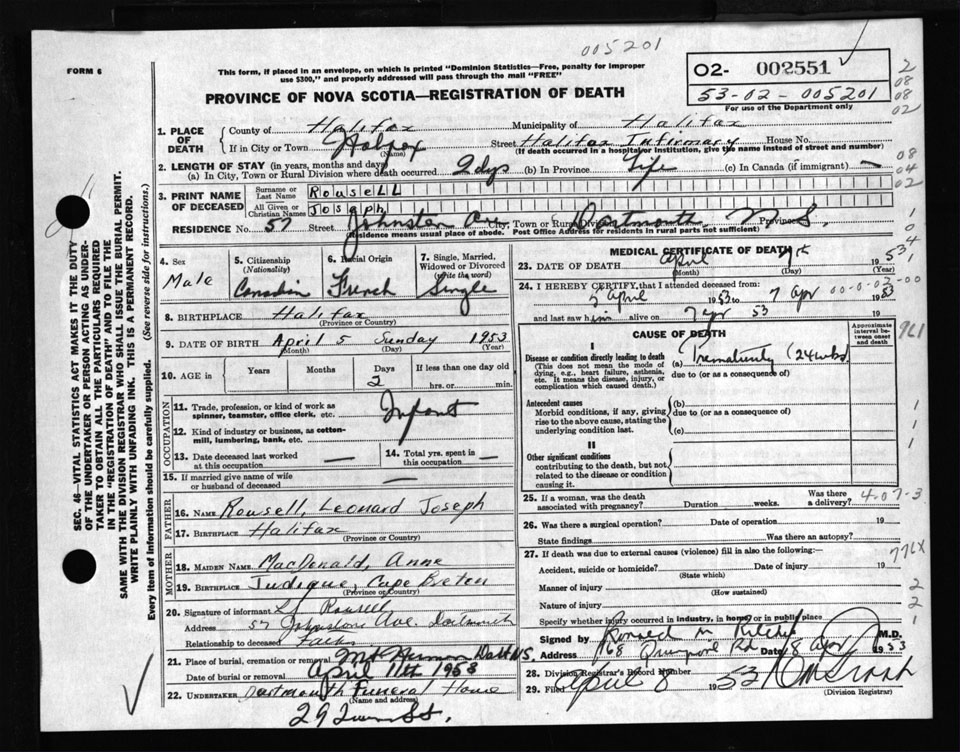 005201
FORM 6
This form, if placed in an envelope, on which is printed "Dominion Statistics—Free, penalty for improper
use $300," and properly addressed will pass through the mail "FREE"
PROVINCE OF NOVA SCOTIA—REGISTRATION OF DEATH
02- 002551
53-02-005201
For use of the Department only
2
08
08
02
1. PLACE OF DEATH
County of Halifax Municipality of Halifax
If in City or Town Halifax (Name) Street Halifax Infirmary House No.
(If death occurred in a hospital or institution, give the name instead of street and number)
2. LENGTH OF STAY (in years, months and days)
(a) In City, Town or Rural Division where death occurred 2 dys (b) In Province Life (c) In Canada (if immigrant) —
08
04
02
3. PRINT NAME OF DECEASED
Surname or Last Name ROUSELL
All Given or Christian Names Joseph
RESIDENCE No. 57 Street Johnston Ave City, Town or Rural Division Dartmouth Province N S
(Residence means usual place of abode. Post Office Address for residents in rural parts not sufficient)
4. Sex Male
5. Citizenship (Nationality) Canadian
6. Racial Origin French
7. Single, Married, Widowed or Divorced (Write the word) Single
8. BIRTHPLACE Halifax
(Province or Country)
9. DATE OF BIRTH April 5 Sunday 1953
(Month) (Day) (Year)
10. AGE in Years Months Days 2 If less than one day old
hrs. or min.
OCCUPATION
11. Trade, profession, or kind of work as
spinner, teamster, office clerk, etc. Infant
12. Kind of industry or business, as cotten-
mill, lumbering, bank, etc.
13. Date deceased last worked
at this occupation —
14. Total yrs. spent in
this occupation —
15. If married give name of wife
or husband of deceased —
FATHER
16. NAME Rousell, Leonard Joseph
17. BIRTHPLACE Halifax
(Province or Country)
MOTHER
18. MAIDEN NAME MacDonald, Anne
19. BIRTHPLACE Judique, Cape Breton
(Province or Country)
20. Signature of informant Rousell
Address 57 Johnstone Ave. Dartmouth
Relationship to deceased Father
21. Place of burial, cremation or removal Mt Hermon Dart NS.
Date of burial or removal April 11th 1953
22. UNDERTAKER Dartmouth Funeral Home
(Name and address)
29 St.
MEDICAL CERTIFICATE OF DEATH
23. DATE OF DEATH April 7th 1953
(Month) (Day) (Year)
24. I HEREBY CERTIFY, that I attended deceased from:
5 April 1953 to 7 Apr 1953
00-0-02-00
and last saw him alive on 7 Apr 53 19
CAUSE OF DEATH
Approximate interval between onset and death
I
Disease or condition directly leading to death
(This does not mean the mode of
dying, e.g., heart failure, asthenia,
etc. It means the disease, injury, or
complication which caused death.)
(a) Prematurity (24 wks)
due to (or as a consequence of)
Antecedent causes
Morbid conditions, if any, giving
rise to the above cause, stating the
underlying condition last.
(b)
due to (or as a consequence of)
(c)
II
Other significant conditions
contributing to the death, but not
related to the disease or condition
causing it.
25. If a woman, was the death
associated with pregnancy? Duration weeks. Was there
a delivery?
4-07-3
26. Was there a surgical operation? Date of operation 19
State findings Was there an autopsy?
27. If death was due to external causes (violence) fill in also the following:—
Accident, suicide or homicide? Date of injury 19
(State which)
776X
Manner of injury
(How sustained)
2
Nature of injury
2
Specify whether injury occurred in industry, in home, or in public place
1
Signed by Ronald M Ritchie M.D.
Address 168 Quinpool Rd Date 8 Apr 1953
28. Division Registrar's Record Number
29. Filed April 8 1953
(Division Registrar)
SEC. 46—VITAL STATISTICS ACT MAKES IT THE DUTY
OF THE UNDERTAKER OR PERSON ACTING AS UNDER-
TAKER TO OBTAIN ALL THE PARTICULARS REQUIRED
IN THE "REGISTRATION OF DEATH" AND TO FILE THE
SAME WITH THE DIVISION REGISTRAR WHO SHALL ISSUE THE BURIAL PERMIT.
WRITE PLAINLY WITH UNFADING INK. THIS IS A PERMANENT RECORD.
Every item of information should be carefully supplied. (See reverse side for instructions.)